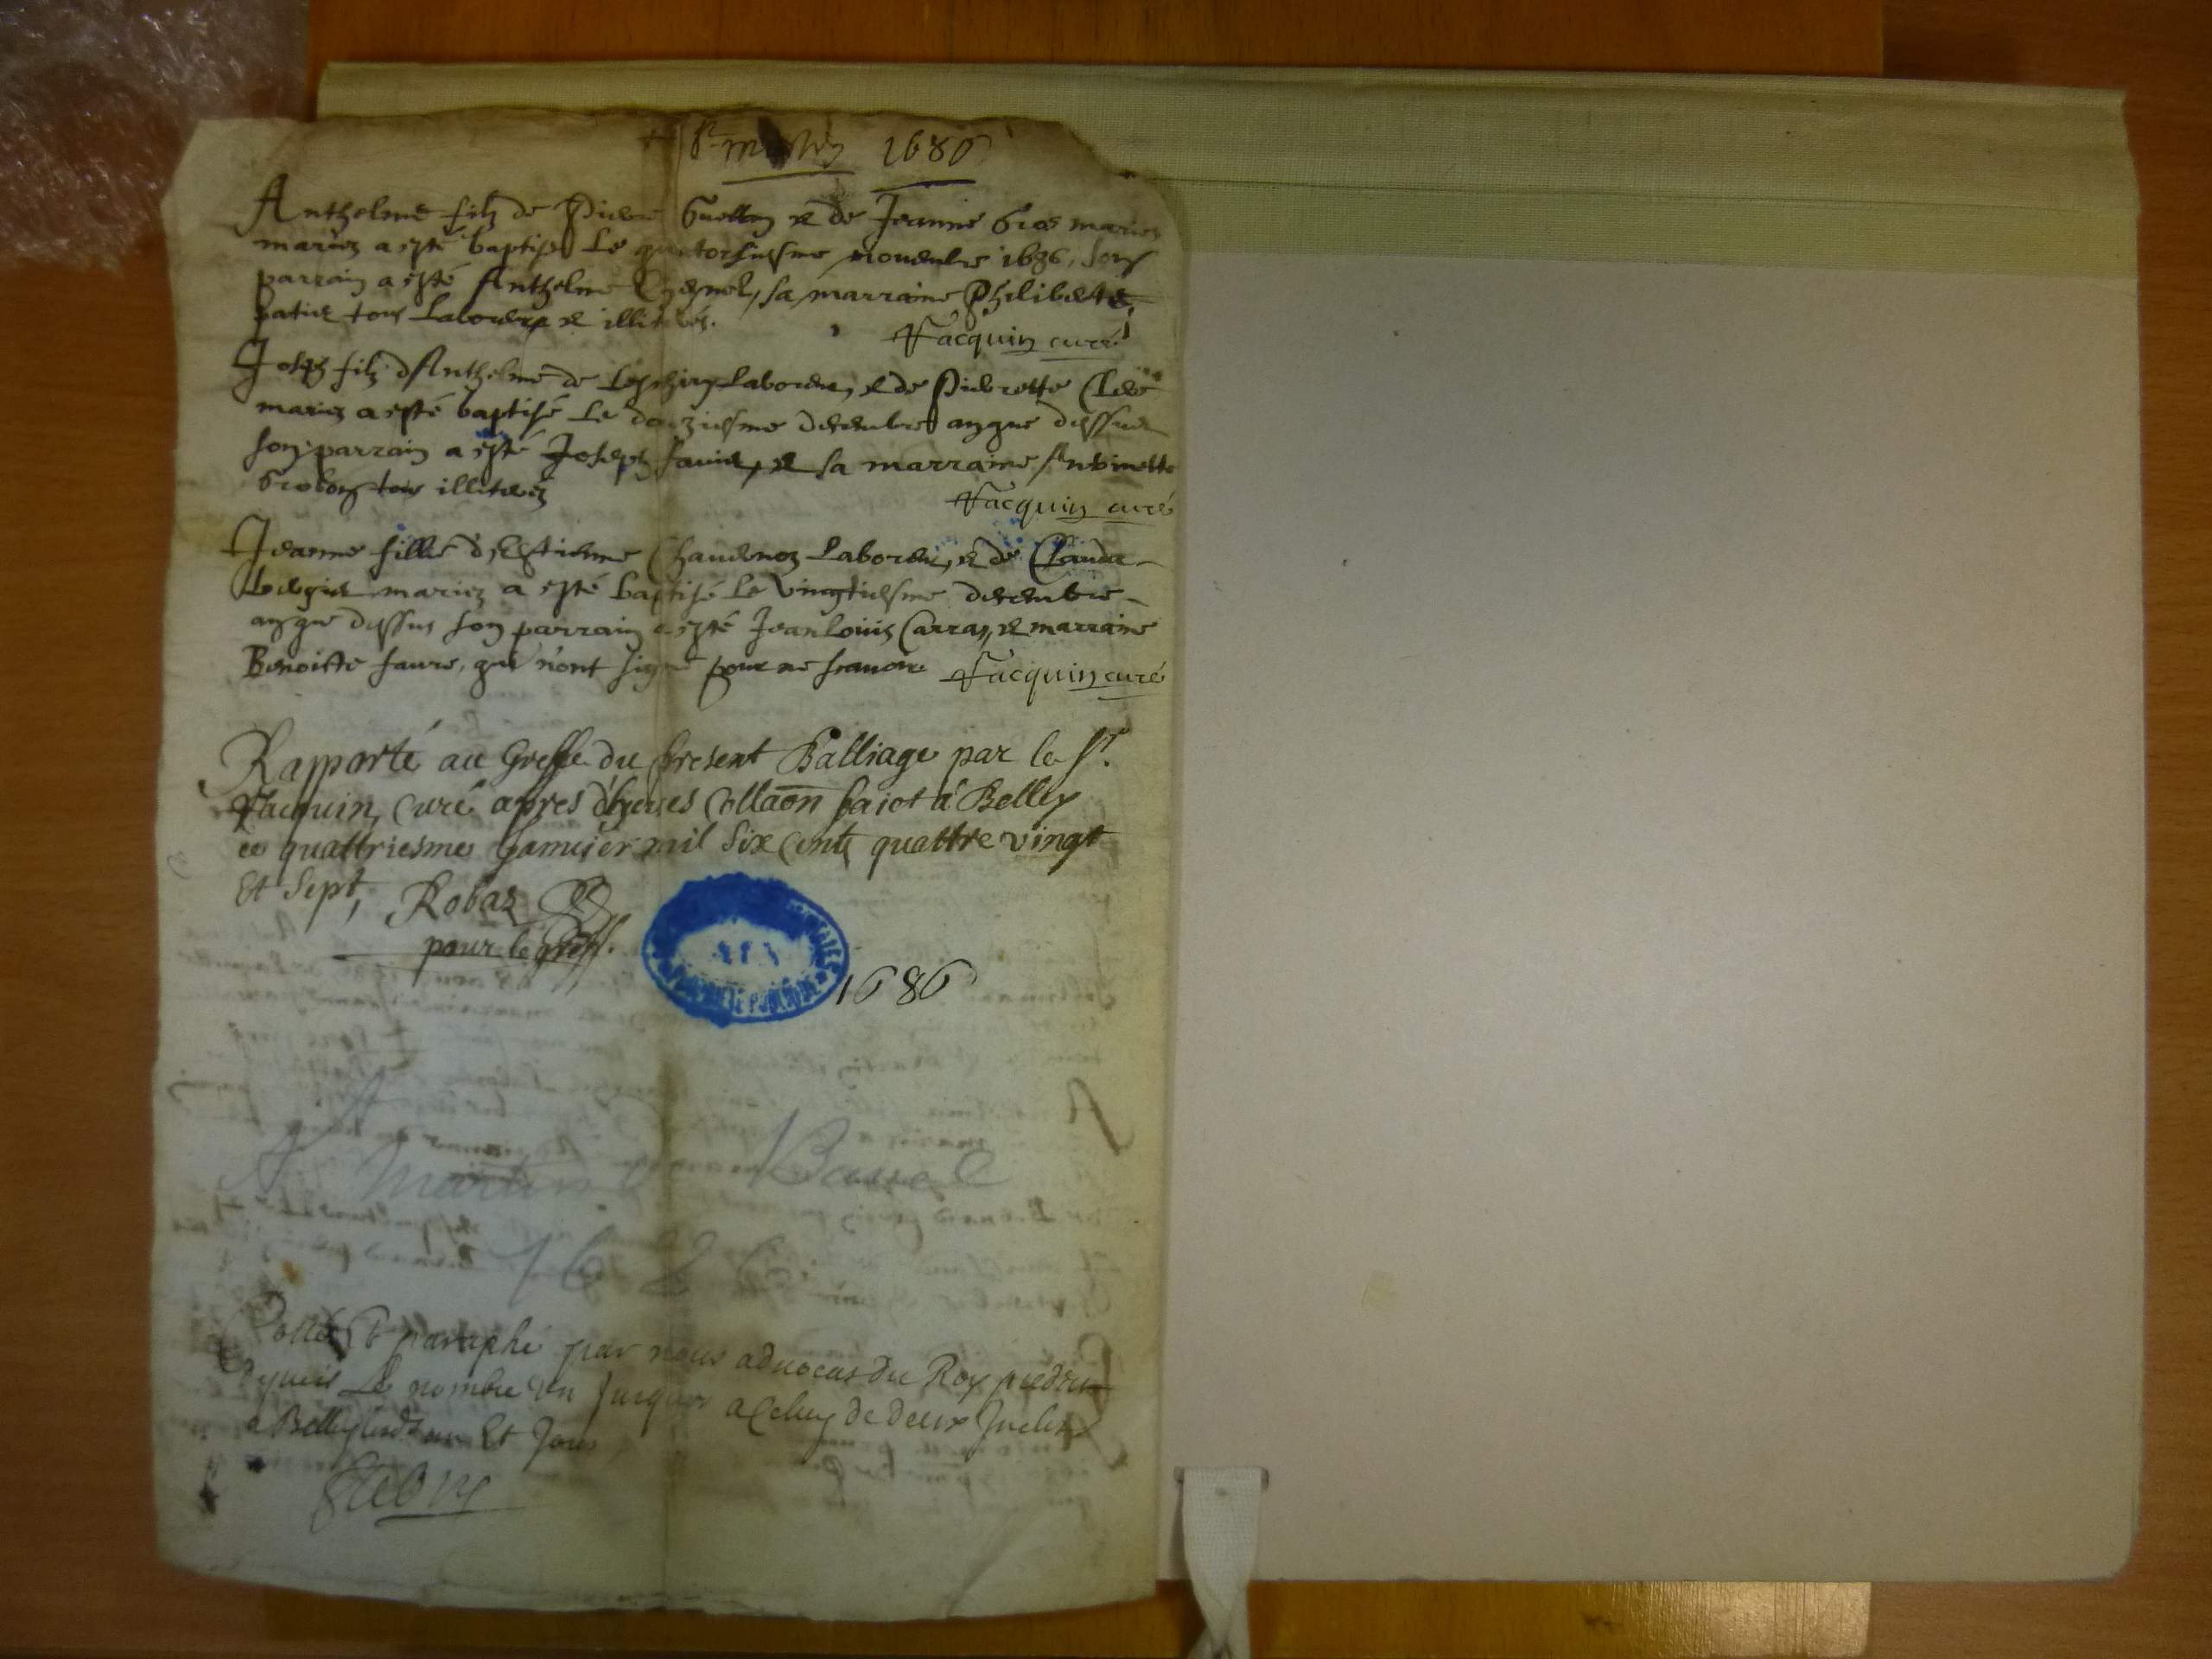 St martin 1686
Anthelme filz de Pierre Guelloz & de Jeanne Gros mariez
mariez a esté baptisé Le quatorsiesme nouembre 1686, son
parrain a esté Anthelme, sa marraine Philiberte
tous Laboureurs & illiterez.
Facquin curé
Joseph filz d'Anthelme de Laboureur, & de Pierrette
mariez a esté baptisé Le douziesme decembre an que dessus
son parrain a esté Joseph & sa marraine Antoinette
tous illiterez
Facquin curé
Jeanne fille d'Estienne Chaudenoz Laboureur, & de Clauda
mariez a esté baptisé Le vingtiesme decembre
an que dessus son parrain a esté Jean Louis Carraz, & marraine
Benoiste faure, qui n'ont signé pour ne scauoir Facquin curé
Rapporté au Greffe du present Balliage par le Sr.
Facquin, Curé apres dheues Collaōn faict à Belley
ce quattriesme Januier mil six cents quattre vingt
et sept, Robaz
pour le greff.
1686
St Martin Bavel
1686
Cotté & paraphé par nous aduocat du Roy
depuis Le nombre Un Jusques a Celuy de deux Inclus
a Belley an Et Jour